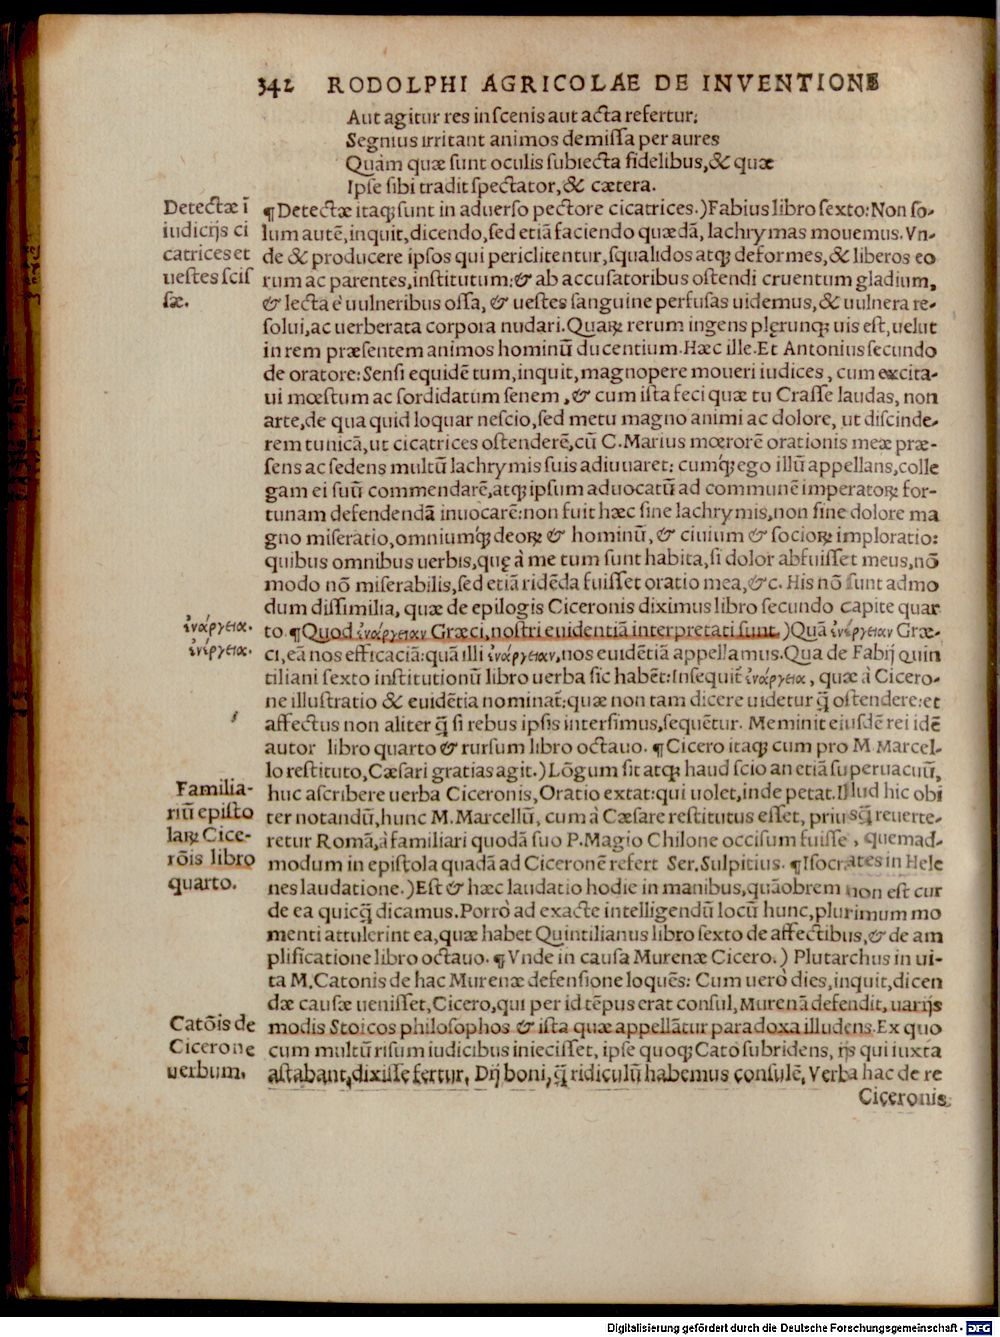 342 RODOLPHI AGRICOLAE DE INVENTIONE
Aut agitur res in scenis aut acta refertur:
Segnius irritant animos demissa per aures
Quàm quæ sunt oculis subiecta fidelibus, & quæ
Ipse sibi tradit spectator, & cætera.
Detectæ ī
iudicijs ci
catrices et
uestes scis
sæ.
¶Detectæ itaq; sunt in aduerso pectore cicatrices.) Fabius libro sexto: Non so-
lum autē, inquit, dicendo, sed etiā faciendo quædā, lachrymas mouemus. Vn-
de & producere ipsos qui periclitentur, squalidos atq; deformes, & liberos eo
rum ac parentes, institutum: & ab accusatoribus ostendi cruentum gladium,
& lecta è uulneribus ossa, & uestes sanguine perfusas uidemus, & uulnera re-
solui, ac uerberata corpora nudari. Quaꝝ rerum ingens plęrunq; uis est, uelut
in rem præsentem animos hominū ducentium. Hæc ille. Et Antonius secundo
de oratore: Sensi equidē tum, inquit, magnopere moueri iudices, cum excita-
ui mœstum ac sordidatum senem, & cum ista feci quæ tu Crasse laudas, non
arte, de qua quid loquar nescio, sed metu magno animi ac dolore, ut discinde-
rem tunicā, ut cicatrices ostenderē, cū C. Marius mœrorē orationis meæ præ-
sens ac sedens multū lachrymis suis adiuuaret: cumq́; ego illū appellans, colle
gam ei suū commendarē, atq; ipsum aduocatū ad communē imperatoꝝ for-
tunam defendendā inuocarē: non fuit hæc sine lachrymis, non sine dolore ma
gno miseratio, omniumq́; deoꝝ & hominū, & ciuium & socioꝝ imploratio:
quibus omnibus uerbis, quę à me tum sunt habita, si dolor abfuisset meus, nō
modo nō miserabilis, sed etiā ridēda fuisset oratio mea, &c. His nō sunt admo
dum dissimilia, quæ de epilogis Ciceronis diximus libro secundo capite quar
ἐνάργεια.
ἐνέργεια.
to ¶Quod ἐνάργειαν Græci, nostri euidentiā interpretati sunt.) Quā ἐνέργειαν Græ-
ci, eā nos efficaciā: quā illi ἐνάργειαν, nos euidētiā appellamus. Qua de Fabij Quin
tiliani sexto institutionū libro uerba sic habēt: Insequit̃ ἐνάργεια, quæ à Cicero-
ne illustratio & euidētia nominat̃: quæ non tam dicere uidetur q̃ ostendere: et
affectus non aliter q̃ si rebus ipsis intersimus, sequētur. Meminit eiusdē rei idē
autor libro quarto & rursum libro octauo. ¶Cicero itaq; cum pro M. Marcel-
lo restituto, Cæsari gratias agit.) Lōgum sit atq; haud scio an etiā superuacuū,
Familia-
riū episto
laꝝ Cice-
rōis libro
quarto.
huc ascribere uerba Ciceronis, Oratio extat: qui uolet, inde petat. Illud hic obi
ter notandū, hunc M. Marcellū, cum à Cæsare restitutus esset, priusq̃ reuerte-
retur Romā, à familiari quodā suo P. Magio Chilone occisum fuisse, quemad-
modum in epistola quadā ad Ciceronē refert Ser. Sulpitius. ¶Isocrates in Hele
nes laudatione.) Est & hæc laudatio hodie in manibus, quāobrem non est cur
de ea quicq̃ dicamus. Porrò ad exacte intelligendū locū hunc, plurimum mo
menti attulerint ea, quæ habet Quintilianus libro sexto de affectibus, & de am
plificatione libro octauo. ¶Vnde in causa Murenæ Cicero.) Plutarchus in ui-
ta M. Catonis de hac Murenæ defensione loquēs: Cum uerò dies, inquit, dicen
dæ causæ uenisset, Cicero, qui per id tēpus erat consul, Murenā defendit, uarijs
Catōis de
Cicerone
uerbum.
modis Stoicos philosophos & ista quæ appellātur paradoxa illudens. Ex quo
cum multū risum iudicibus iniecisset, ipse quoq; Cato subridens, ijs qui iuxta
astabant, dixisse fertur, Dij boni, q̃ ridiculū habemus consulē, Verba hac de re
Ciceronis
Digitalisierung gefördert durch die Deutsche Forschungsgemeinschaft - DFG